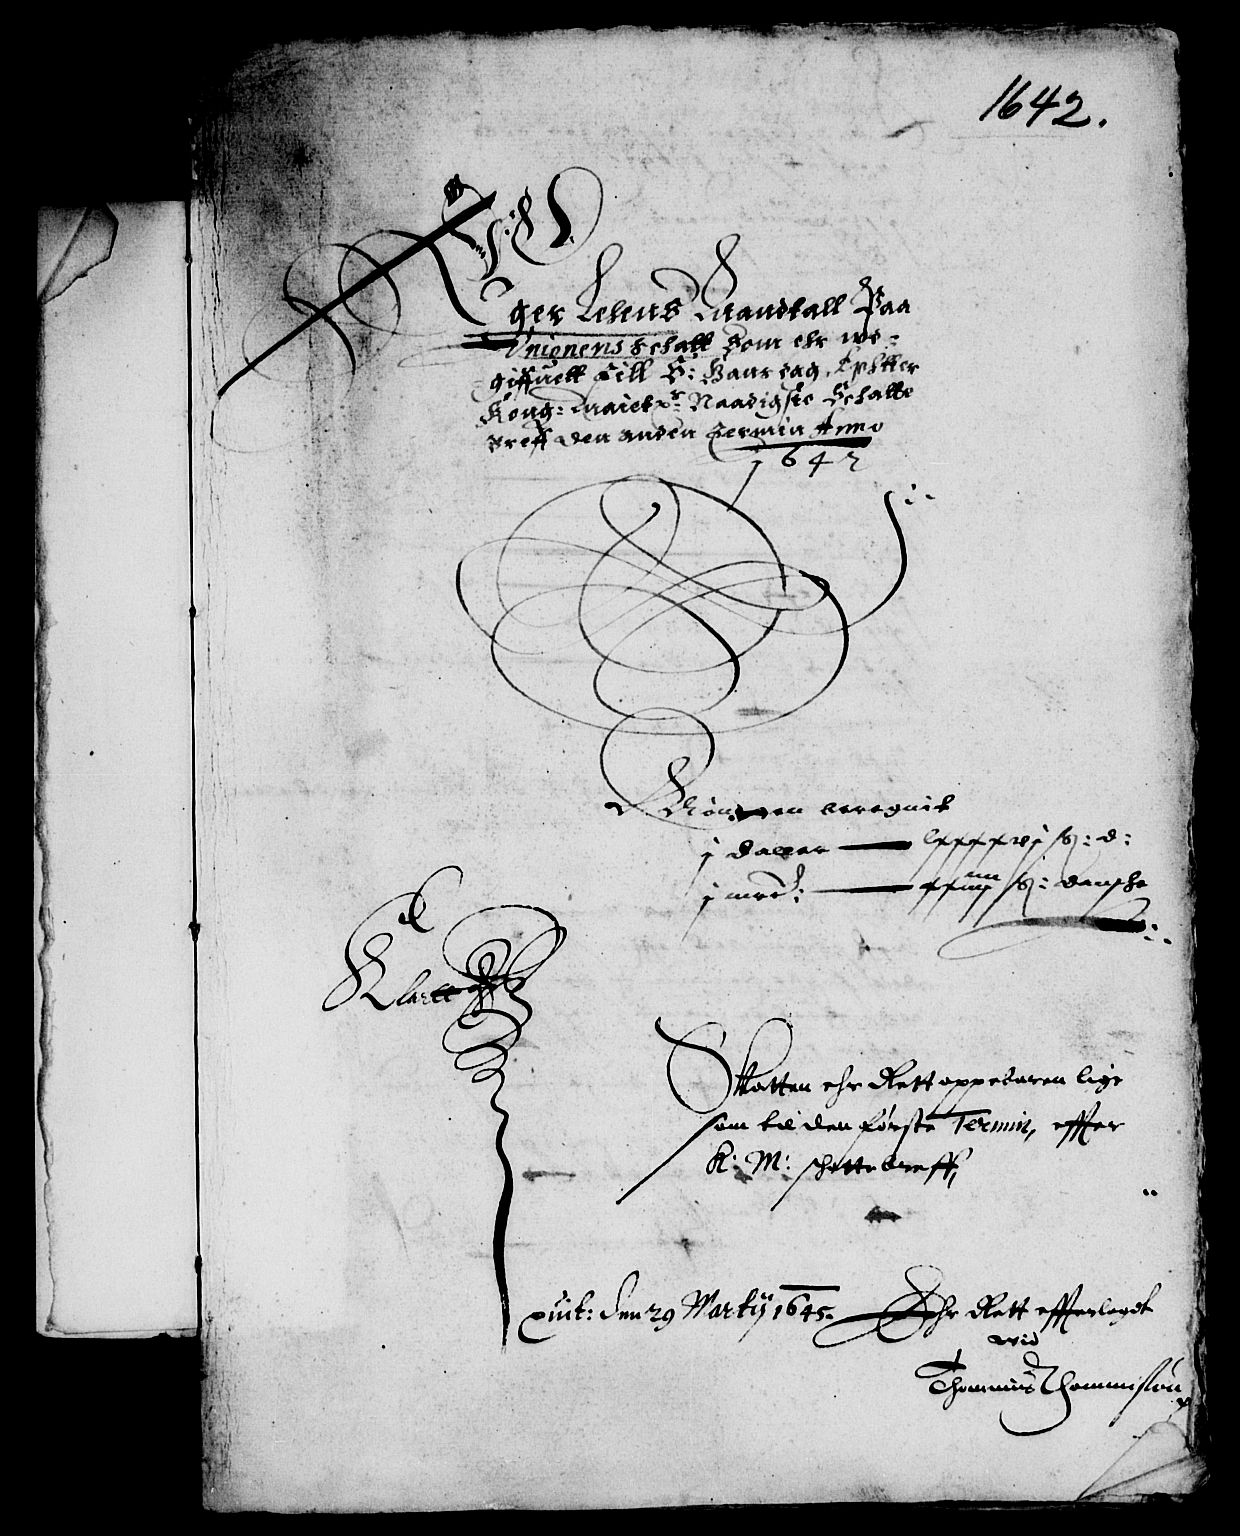 1642.
Eger Lehens Mandtall Paa
Unionens Schatt Som ehr ud-
giffuett till S: Haardag, Epther
Kong: Maietz: Naadigste Schatte
breff den anden Termin Anno
1642
Mønten beregnit
j daler — lxxxxvj ß: d:
j mrk: — ß: danske
Klartt
Skatten ehr Rett oppebaren lige
som til den første Termin, effter
K: M: schattebreff,
quit: den 29 Martij 1645.
Ehr Rett effterlagdt
wid
Thommis Thommissøn